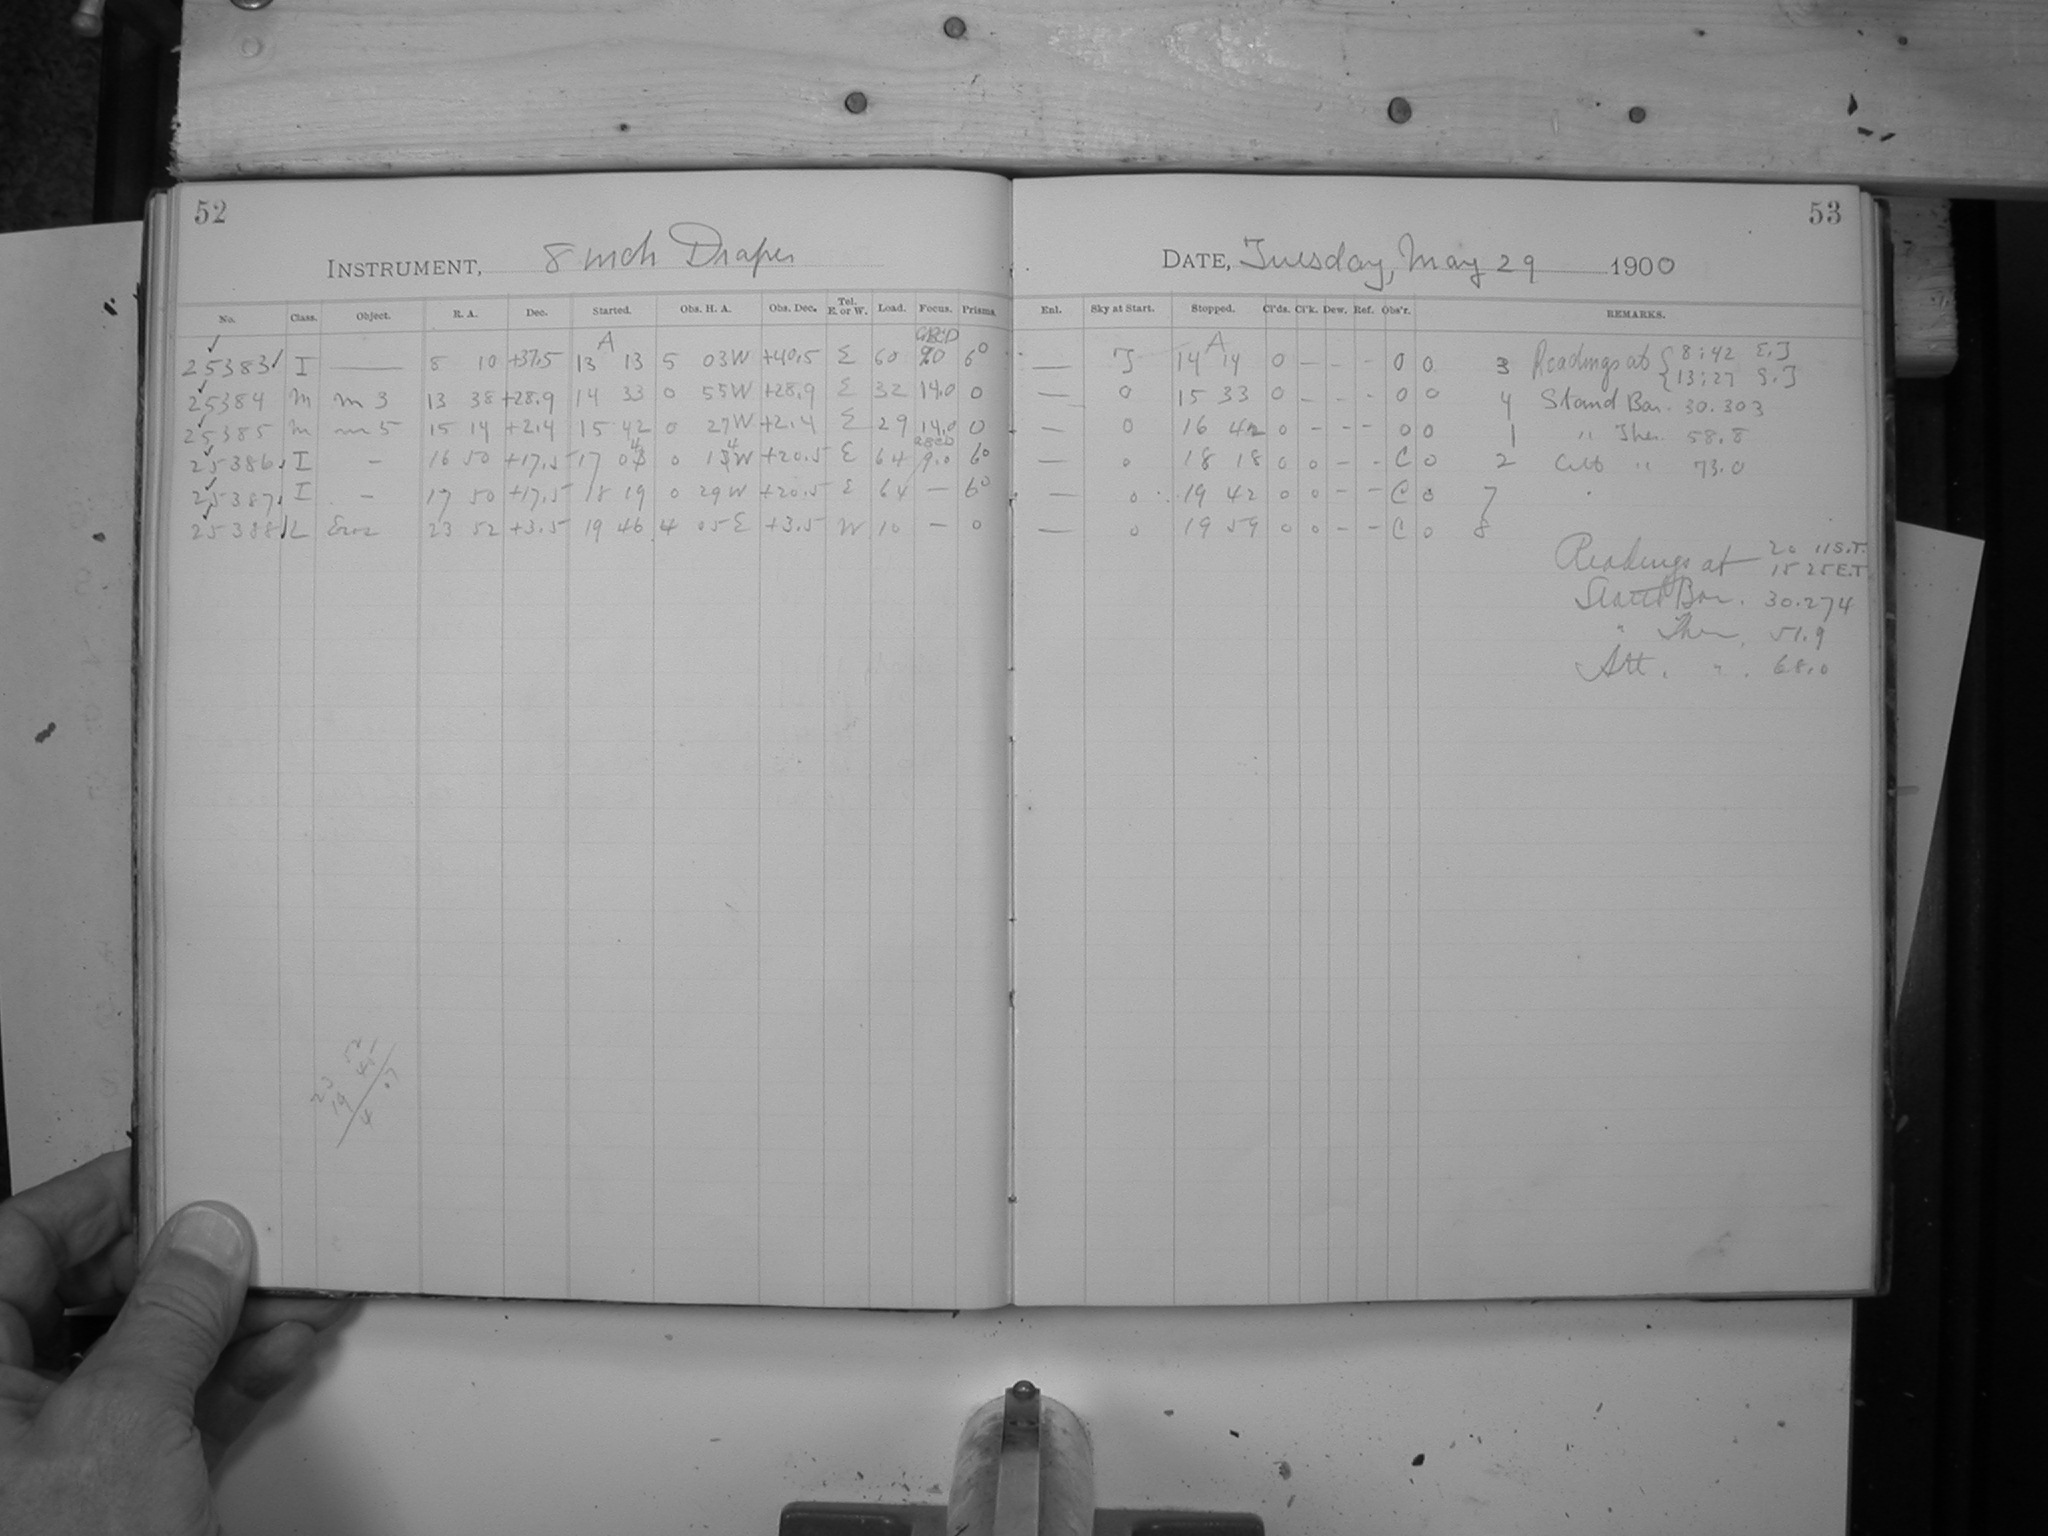 52
INSTRUMENT, 8 inch Draper
No. Class. Object. R. A. Dec. Started. Obs. H. A. Obs. Dec. Tel. E. or W. Load. Focus. Prisms.
25383 I — 8 10 +37.5 A 13 13 5 03W +40.5 E 60 6°
25384 m m 3 13 38 +28.9 14 33 0 55W +28.9 E 32 14.0 0
25385 m m 5 15 14 +2.4 15 42 0 27W +2.4 E 29 14.0 0
25386 I - 16 50 +17.5 17 04 0 14W +20.5 E 64 9.0 6°
25387 I - 17 50 +17.5 18 19 0 29W +20.5 E 64 — 6°
25388 L Eros 23 52 +3.5 19 46 4 05E +3.5 W 10 — 0
23 52
19 45
4 07
53
DATE, Tuesday, May 29 1900
Enl. Sky at Start. Stopped. Cl'ds. Cl'k. Dew. Ref. Obs'r. REMARKS.
— A 14 14 0 - - - 0 0 3 Readings at { 8:42 E.T
13:27 S.T
— 0 15 33 0 - - - 0 0 4 Stand Bar. 30.303
— 0 16 42 0 - - - 0 0 1 " Ther. 58.8
— 0 18 18 0 0 - - C 0 2 Att " 73.0
— 0 19 42 0 0 - - C 0 7
— 0 19 59 0 0 - - C 0 8
Readings at 20 11 S.T.
15 25 E.T.
Stand Bar. 30.274
" Ther. 51.9
Att. " . 68.0